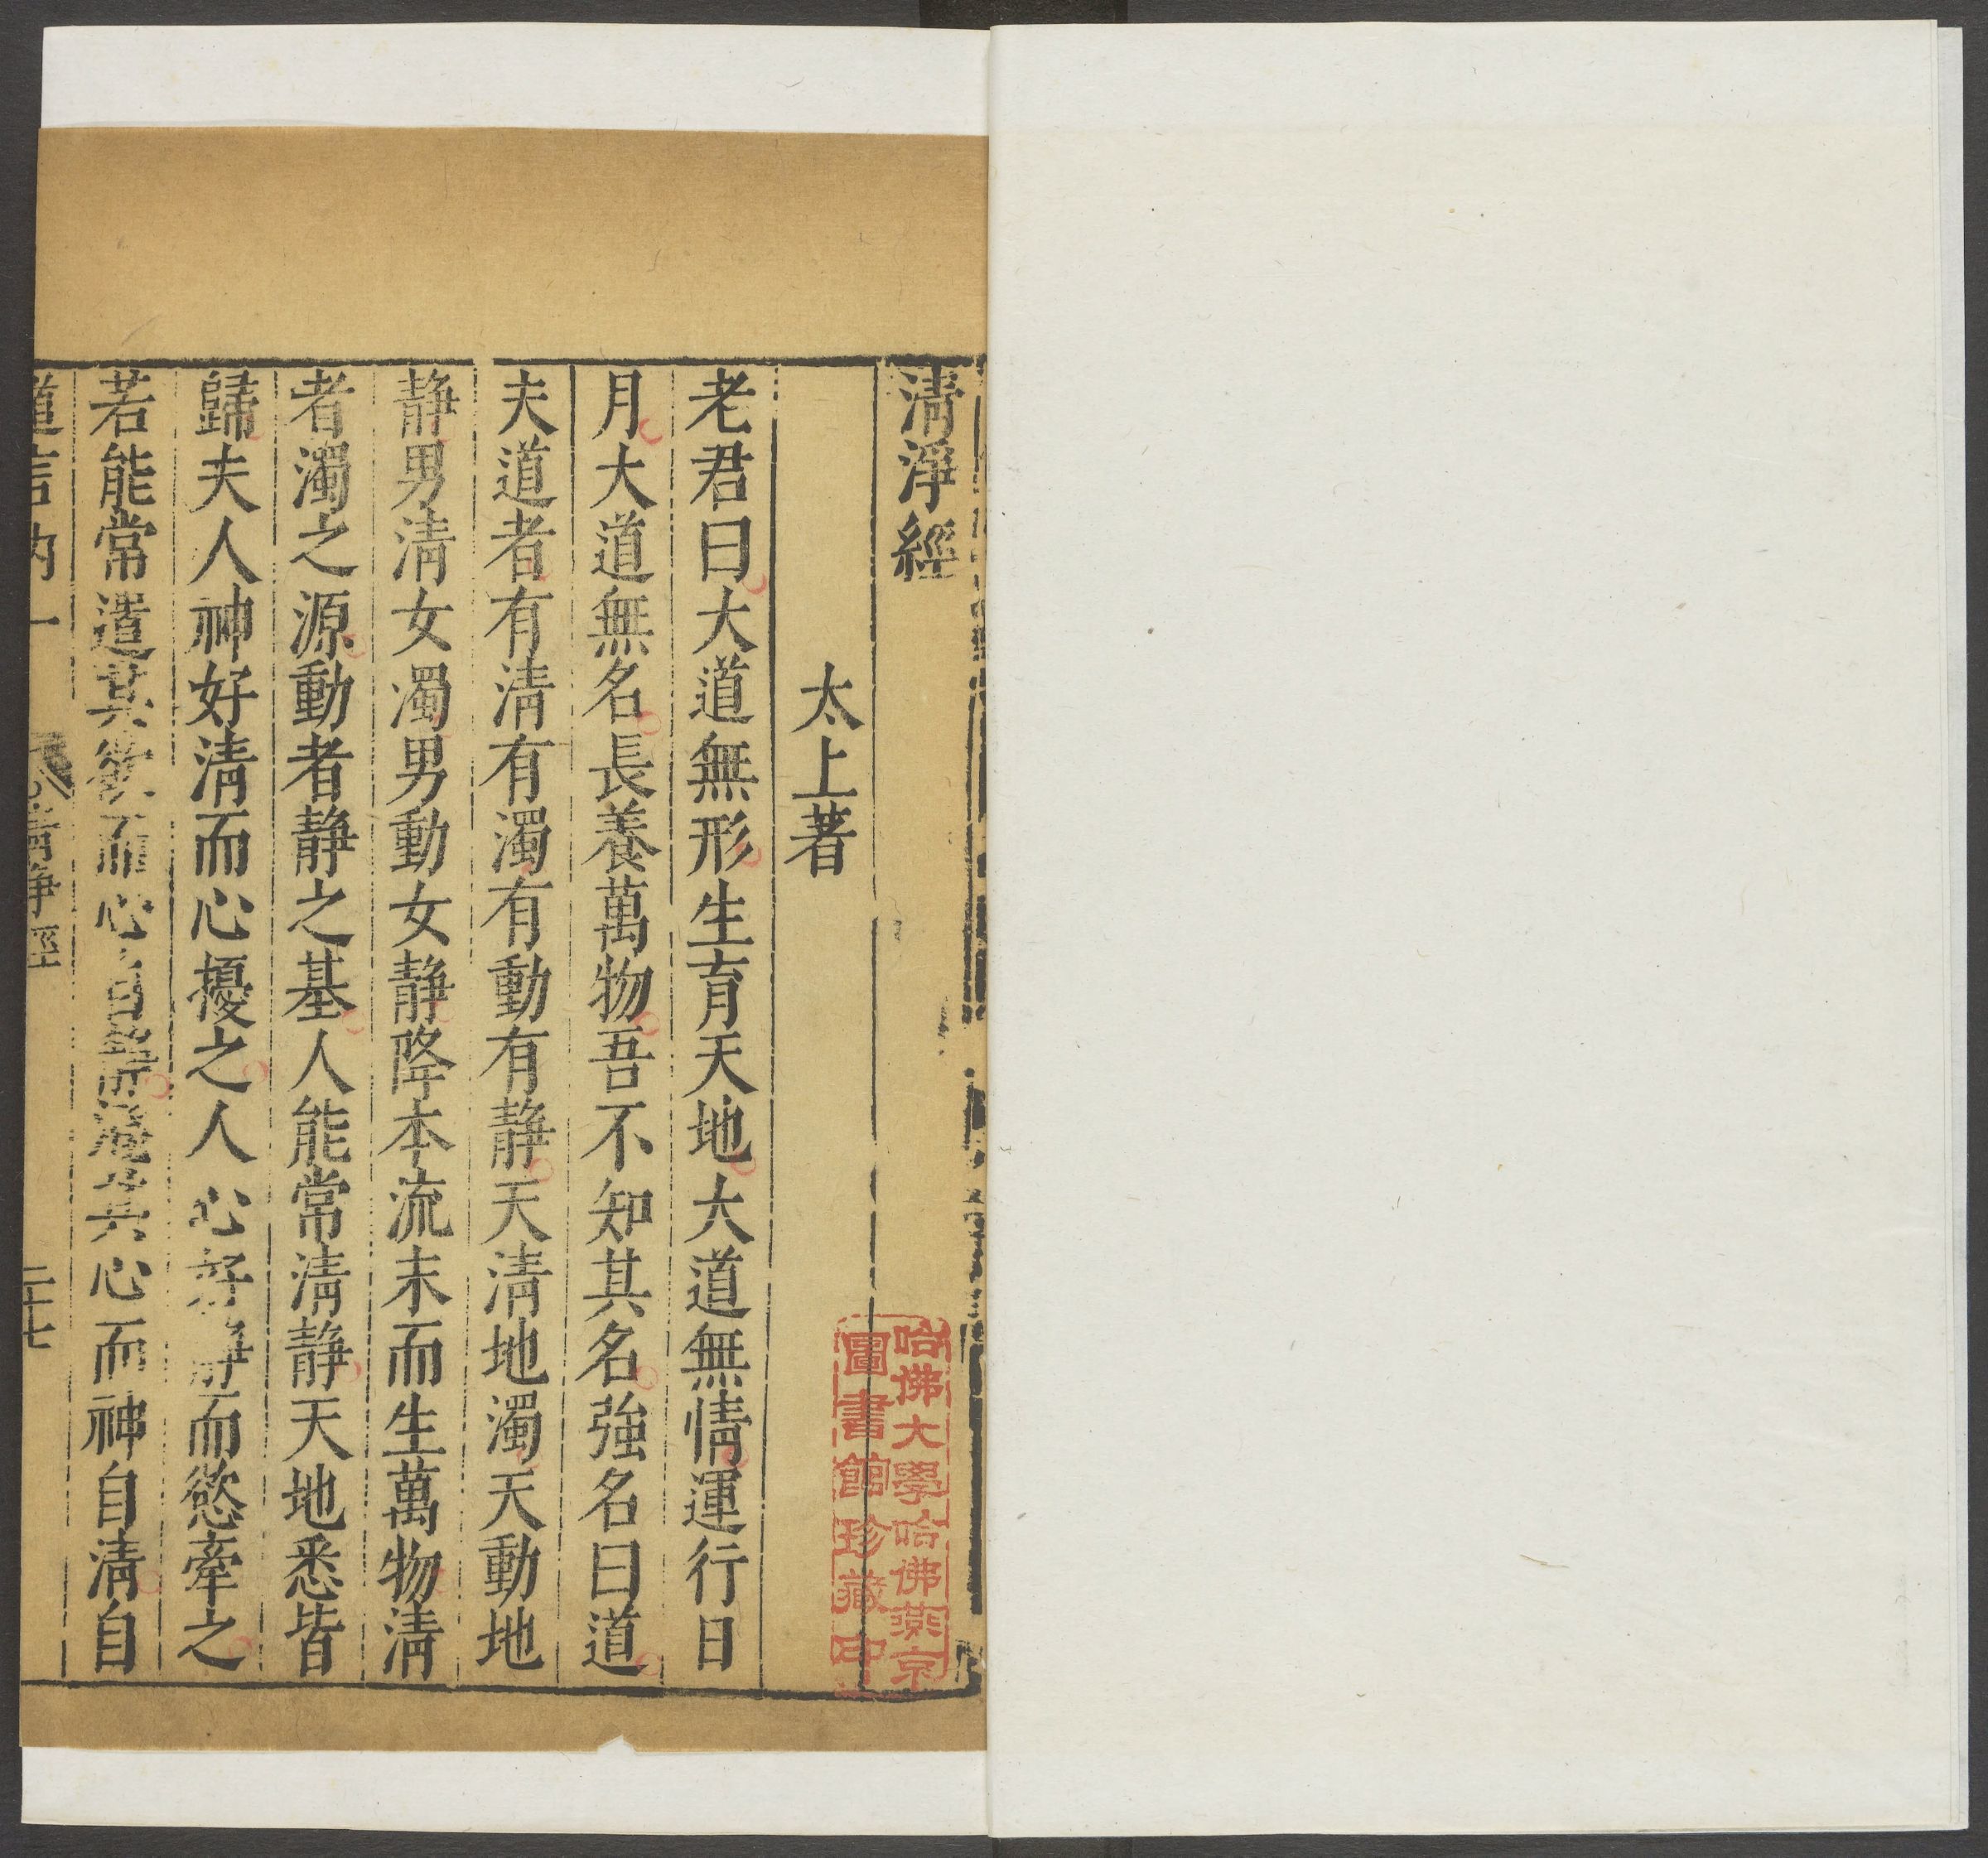 清淨經
太上著
老君曰大道無形生育天地大道無情運行日
月大道無名長養萬物吾不知其名強名曰道
夫道者有清有濁有動有静天清地濁天動地
静男清女濁男動女静降本流末而生萬物清
者濁之源動者静之基人能常清静天地悉皆
歸夫人神好清而心擾之人心好静而慾牽之
若能常遣其慾而心自静澄其心而神自清自
道言內一 清淨經 二十七
哈佛大學哈佛燕京
圖書館珍藏印